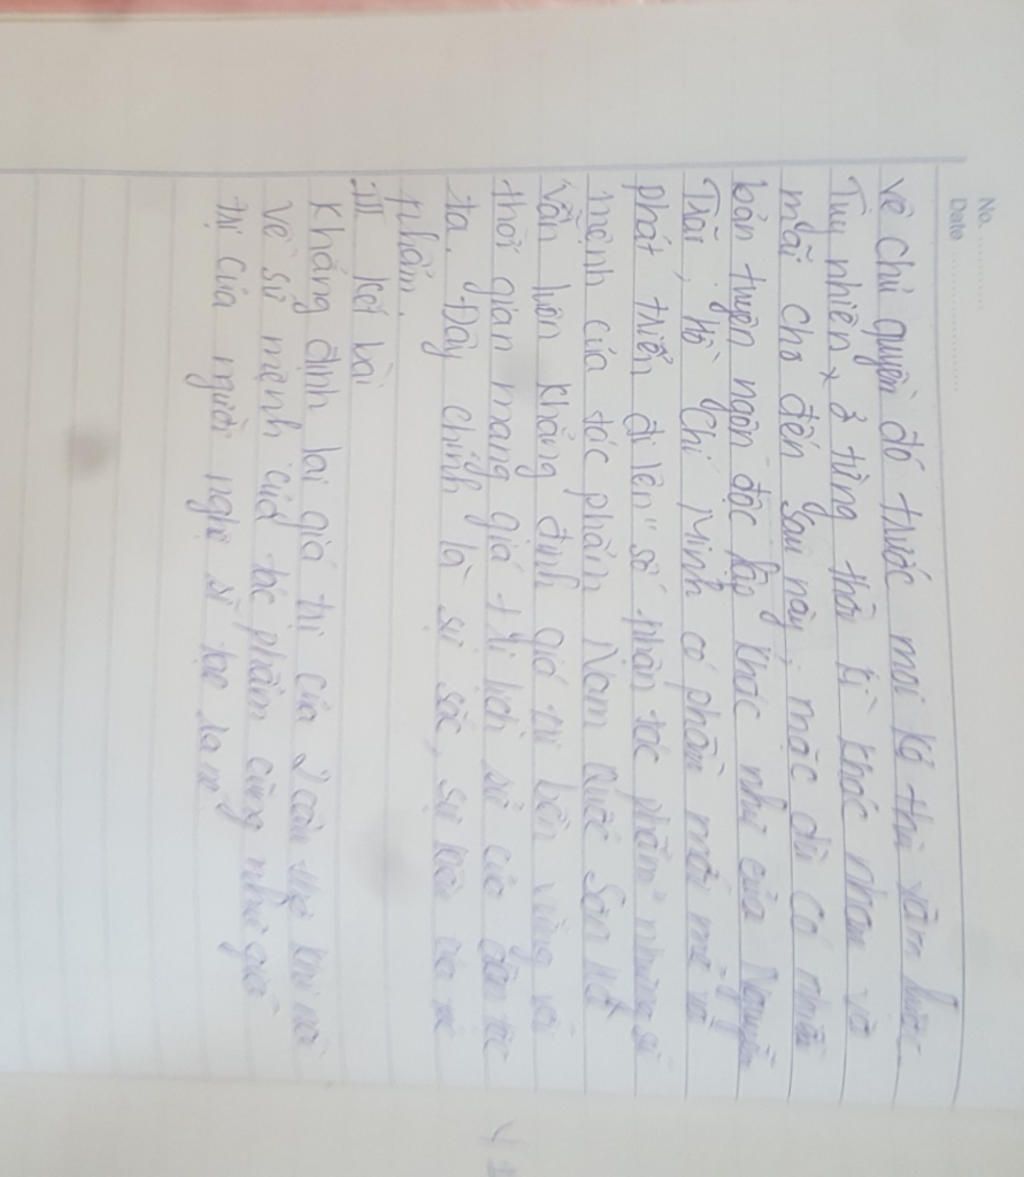 No. ............
Date ....................
về chủ quyền đó trước mọi kẻ thù xâm lược
Tuy nhiên, ở từng thời kì khác nhau và
mãi cho đến sau này, mặc dù có nhiều
bản tuyên ngôn độc lập khác như của Nguyễn
Trãi, Hồ Chí Minh có phần mới mẻ và
phát triển đi lên" số phận tác phẩm" nhưng sứ
mệnh của tác phẩm Nam Quốc Sơn Hà
vẫn luôn khẳng định giá trị bền vững với
thời gian mang giá trị lịch sử của dân tộc
ta. Đây chính là sự sắc, sự của tác
phẩm.
III kết bài
Khẳng định lại giá trị của 2 câu thơ khi nói
về sứ mệnh của tác phẩm cũng như giá
trị của người nghệ sĩ tạo ra nó